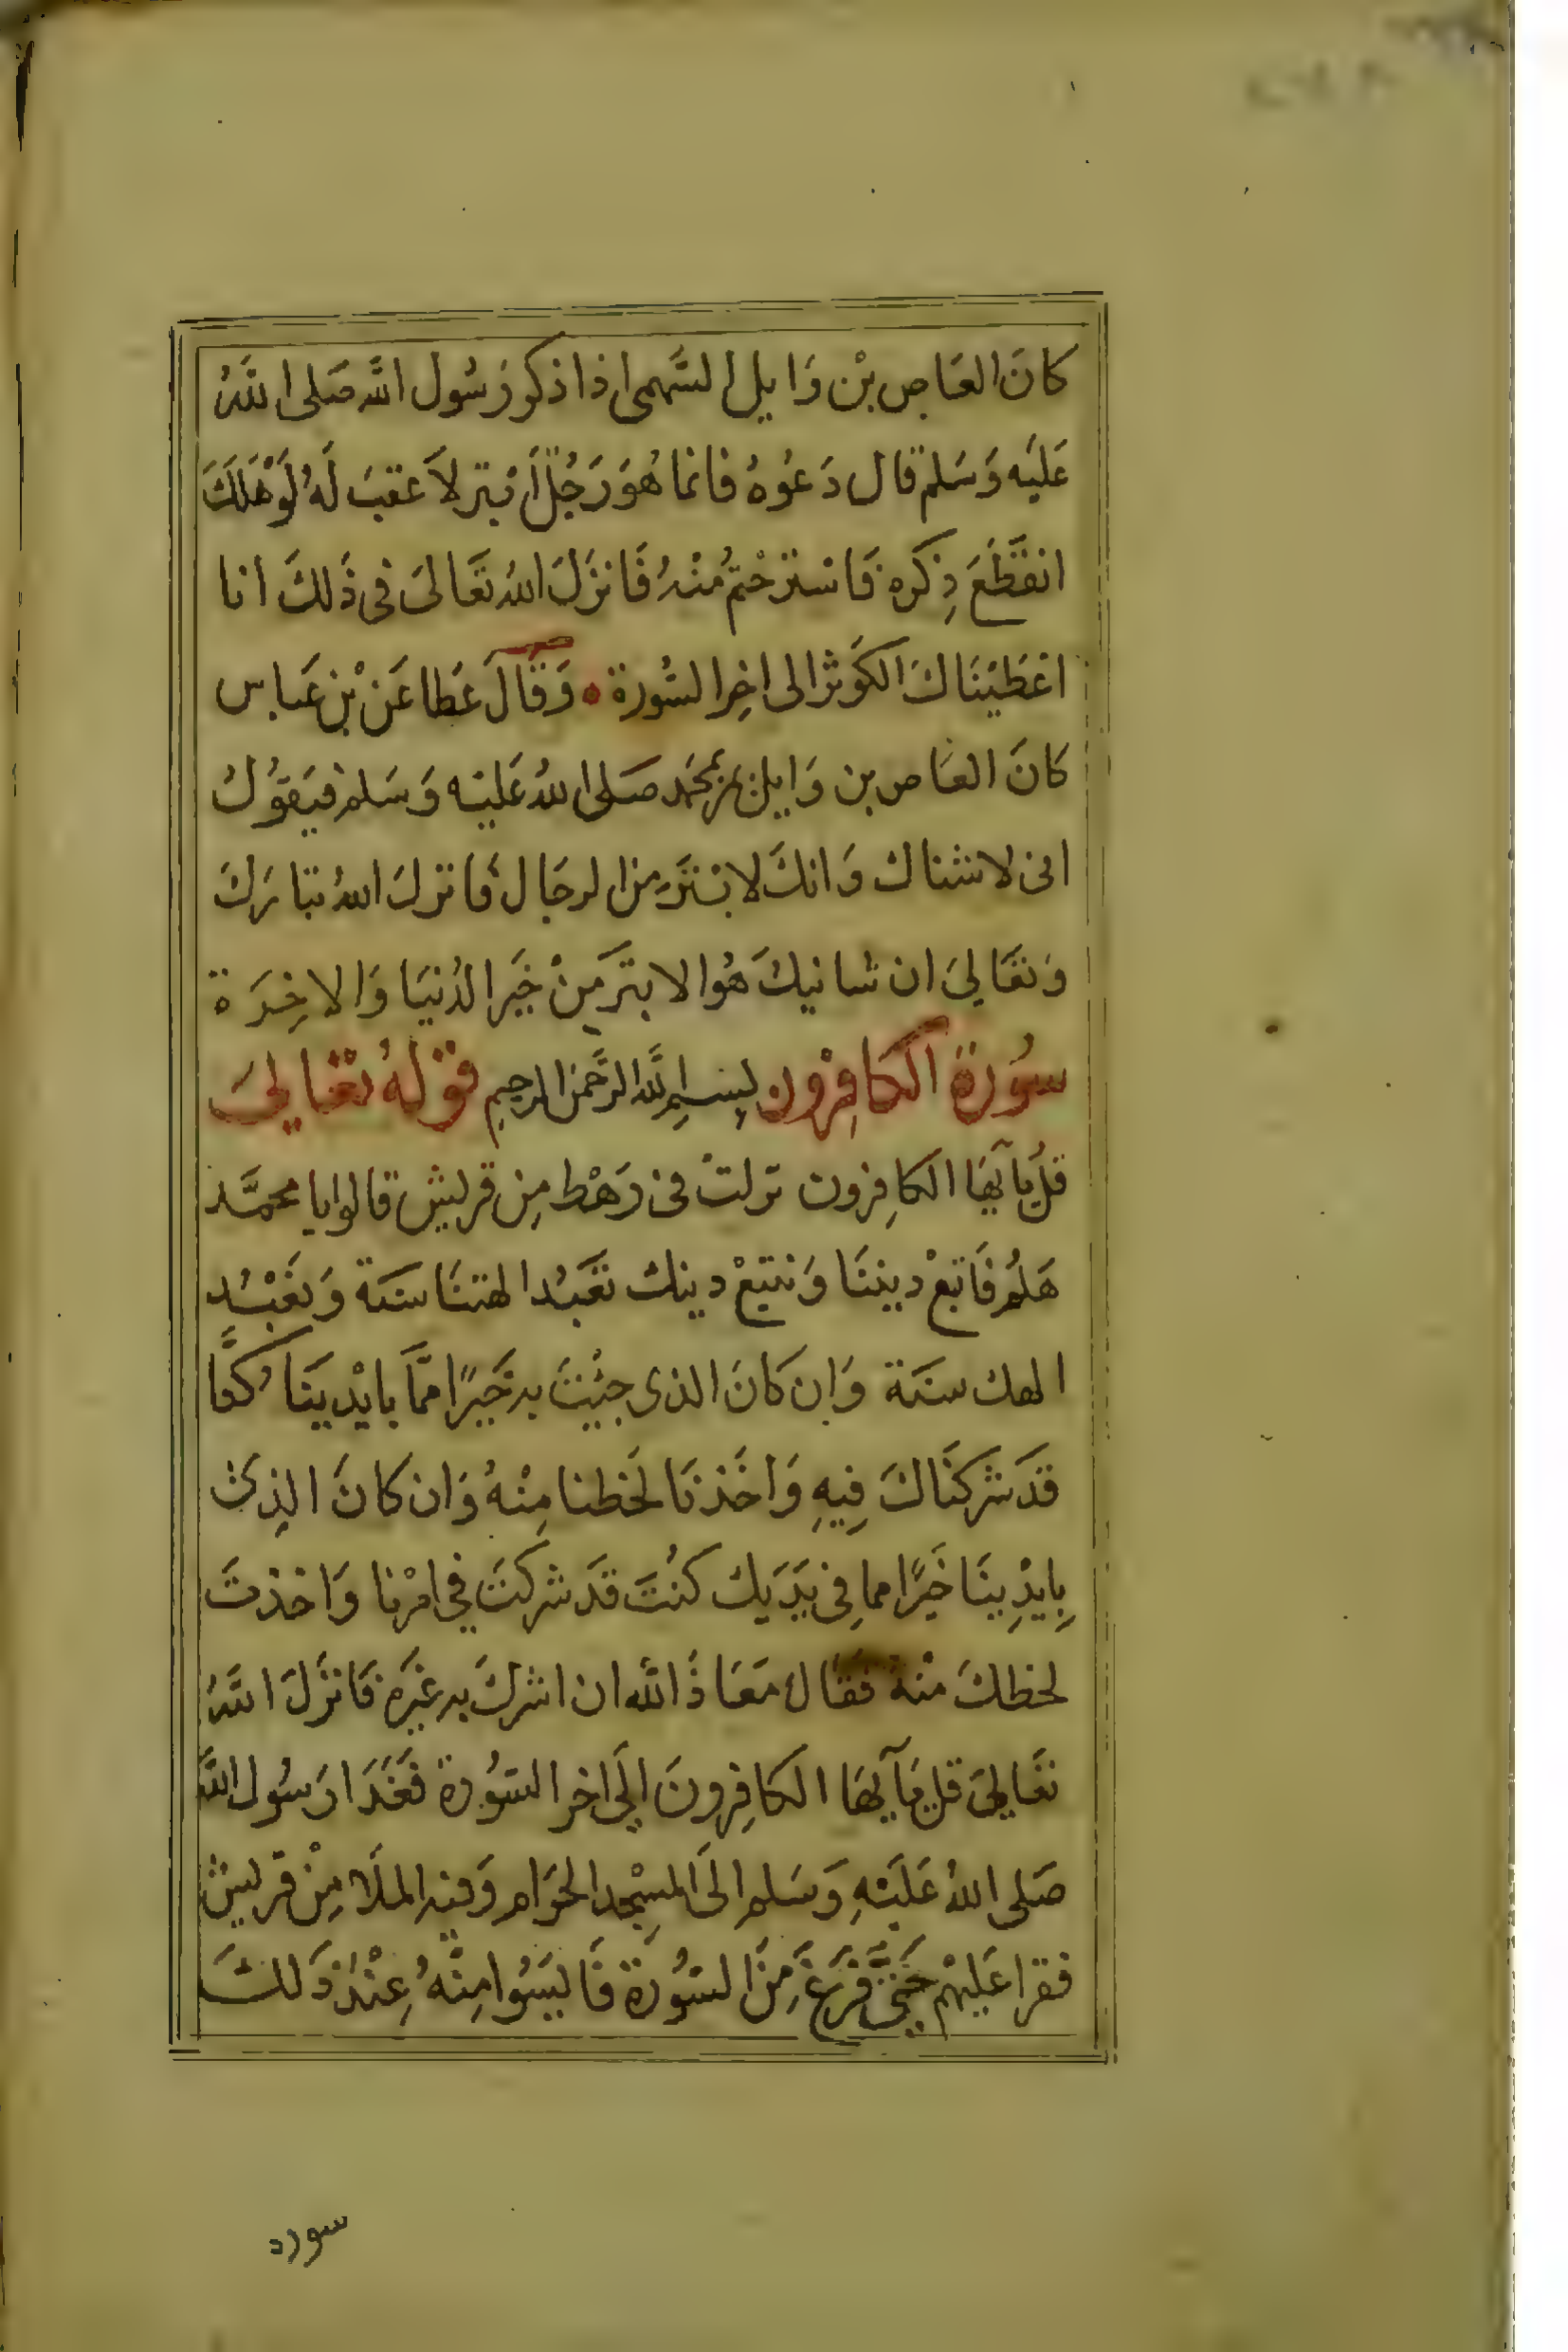 كانَ العَاص بْن وَايل السَّهمى اذا ذكر رَسُول الله صَلى اللهُ
عَليَه وَسَلم قال دَعُوهُ فانما هُوَ رَجُلٌ اَبْتر لاَ عقبَ لَهُ لَوْ هَلَكَ
انقَطَعَ ذِكرَه فَاسْترحْتمُ مْنهُ فَانزَلَ اللهُ تعَالىَ فى ذَلكَ انا
اعْطَيْنَاكَ الكَوثرَ الى اخِر السُورة ۰ وَقَالَ عَطا عَنْ بْن عَباس
كانَ العَاص بن وَايل يمر بمحَمَد صَلى اللهُ عَليْه وَسَلم فيَقوُل
انى لاشناك وَانكَ لابْترَ مِن الرجَال فَانزلَ اللهُ تبَارَكَ
وَتعَالىَ ان شانيكَ هُو الابترَ مِنْ خَير الدُنيَا وَالاخِرَة
سُورة الكافِرْون بِسْم اللَّه الرَّحمَن الرحِيم قوْلهُ تعَالىَ
قل يَآيهَا الكافِرون نزلتْ فى رَهْط مِن قريش قالوا يا محمَّد
هَلُم فَاتبعْ دِيننَا وَنتبعْ دينك تعَبُد الهتنَا سَنَة وَنعْبُد
الهك سنَة وَان كانَ الذى جيْتَ به خَيرًا ممَّا بايْدينَا كُنَّا
قَد شركنَاكَ فِيهِ وَاخَذنَا لحَظنا مِنْهُ وَان كانَ الذِى
بِايْدِينَا خَيرًا مما فِى يَدَيك كنُتَ قَد شركتَ في امْرنا وَاخذتَ
لحظكَ منْهُ فقَال مَعَاذَ اللهُ ان اشركَ به غَيره فَانزَلَ اللهُ
تعَالىَ قل يَآيهَا الكافِرونَ الَى اخر السوُرة فغَدَا رَسُول اللهَ
صَلى اللهُ عَليَهِ وَسَلم الَى المسِجْد الحرَام وَفيه الملَا مِنْ قريش
فقرا عَليْهم حَتىَّ فرَغَ مِنَ السُورَة فَايسَوُا مِنْهُ عِنْد ذَلكَ
سورة